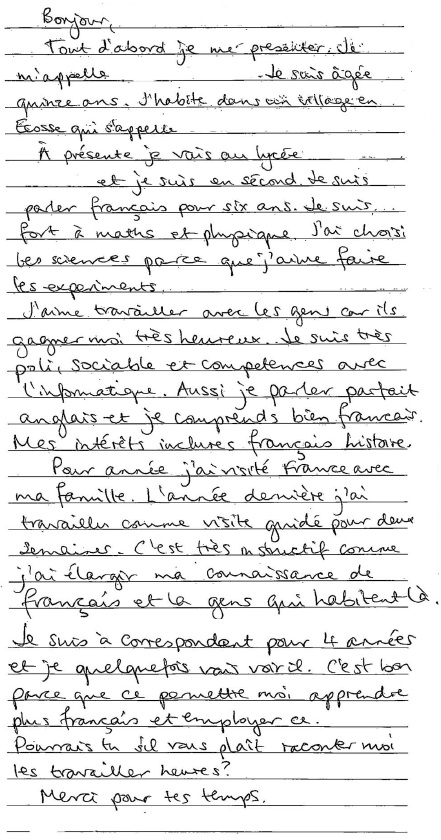 Bonjour,
Tout d'abord je me presenter. Je
m'appelle Je suis âgée
quinze ans. J'habite dans un village en
Écosse qui s'appelle
À présente je vais au lycée
et je suis en second. Je suis
parler français pour six ans. Je suis
fort à maths et physique. J'ai choisi
les sciences parce que j'aime faire
les experiments.
J'aime travailler avec les gens car ils
gagner moi très heureux. Je suis très
poli, sociable et competences avec
l'informatique. Aussi je parler parfait
anglais et je comprends bien francais.
Mes intérêts inclures français histoire.
Pour année j'ai visité France avec
ma famille. L'année dernière j'ai
travaillu comme visite guidé pour deux
semaines. C'est très instructif comme
j'ai élargir ma connaissance de
français et la gens qui habitent là.
Je suis à correspondant pour 4 années
et je quelquefois vais voir il. C'est bon
parce que ce permettre moi apprendre
plus français et employer ce.
Pourrais tu s'il vous plaît raconter moi
les travailler heures?
Merci pour tes temps.